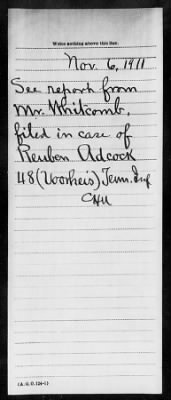 Write nothing above this line.
Nov. 6, 1911
See report from
Mr. Whitcomb,
filed in case of
Reuben Adcock
48 (Voorheis) Tenn. Inf
CHU
(A. G. O. 124-1)